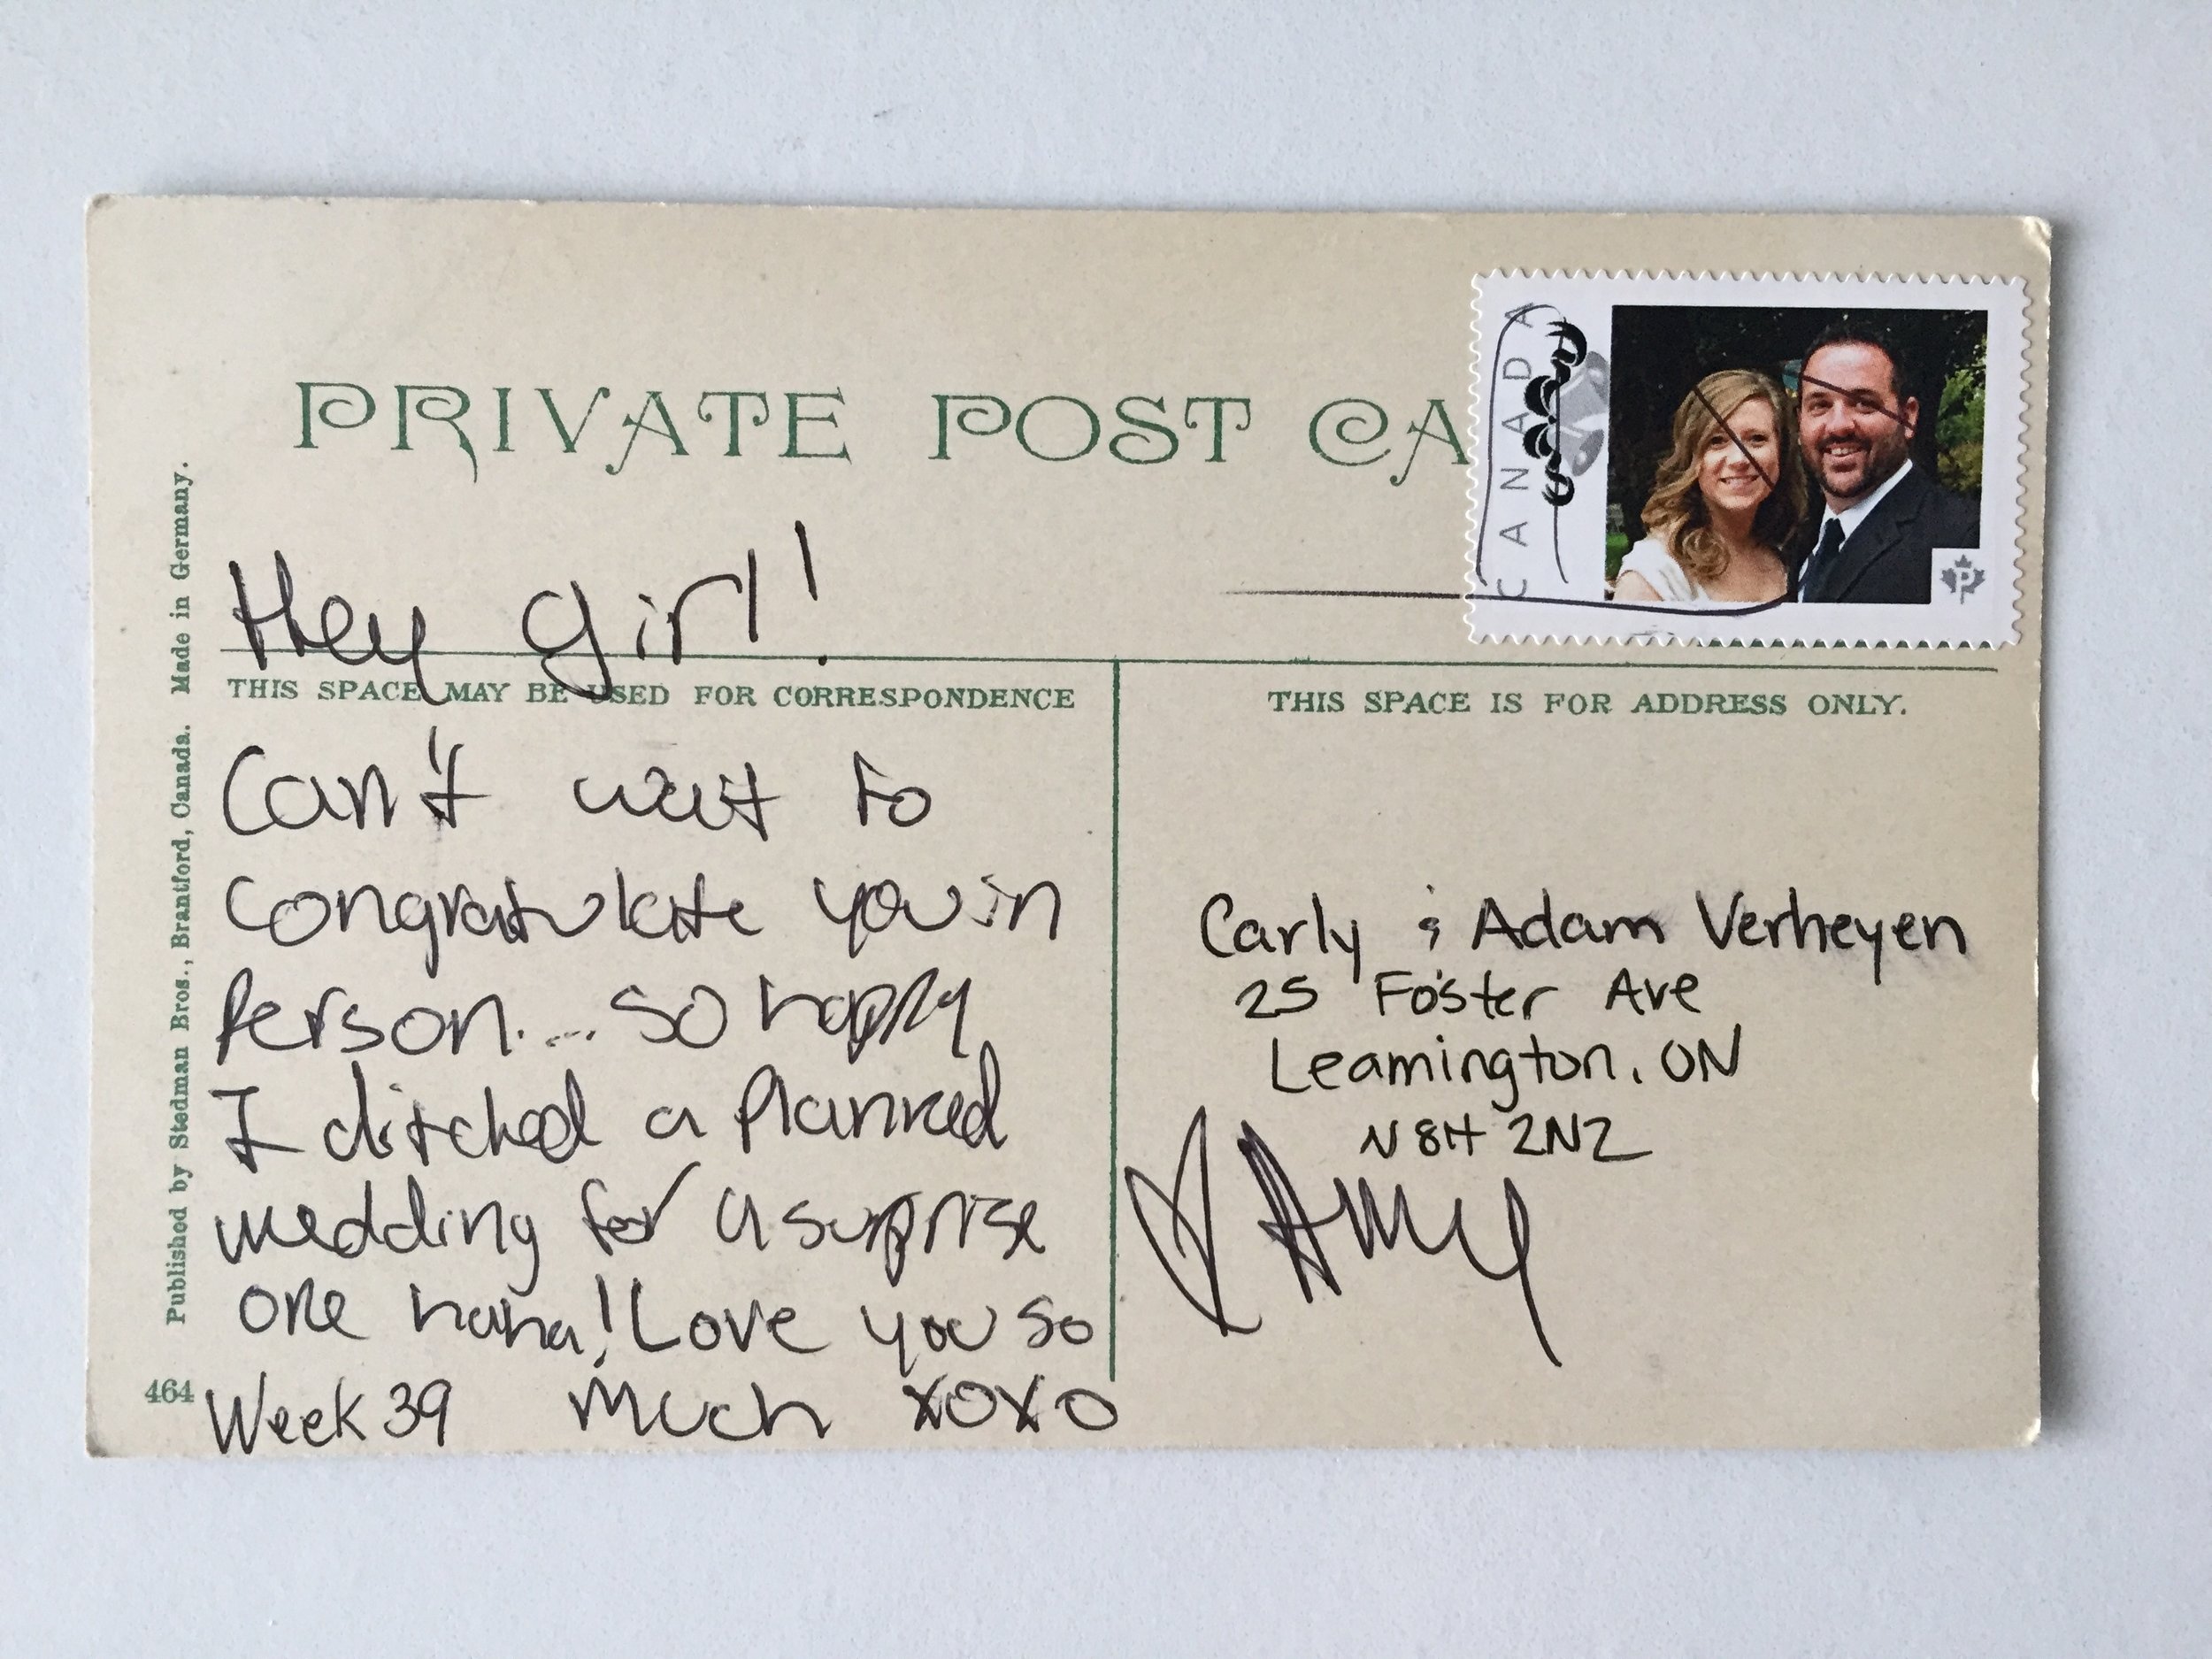 PRIVATE POST CA
CANADA
P
Hey girl!
THIS SPACE MAY BE USED FOR CORRESPONDENCE
Can't wait to
congratulate you in
Person.... so happy
I ditched a Planned
wedding for a surprise
one haha! Love you so
Week 39 much xoxo
THIS SPACE IS FOR ADDRESS ONLY.
Carly & Adam Verheyen
25 Foster Ave
Leamington, ON
N8H 2N2
♡ Amy
Published by Stedman Bros., Brantford, Canada. Made in Germany.
464